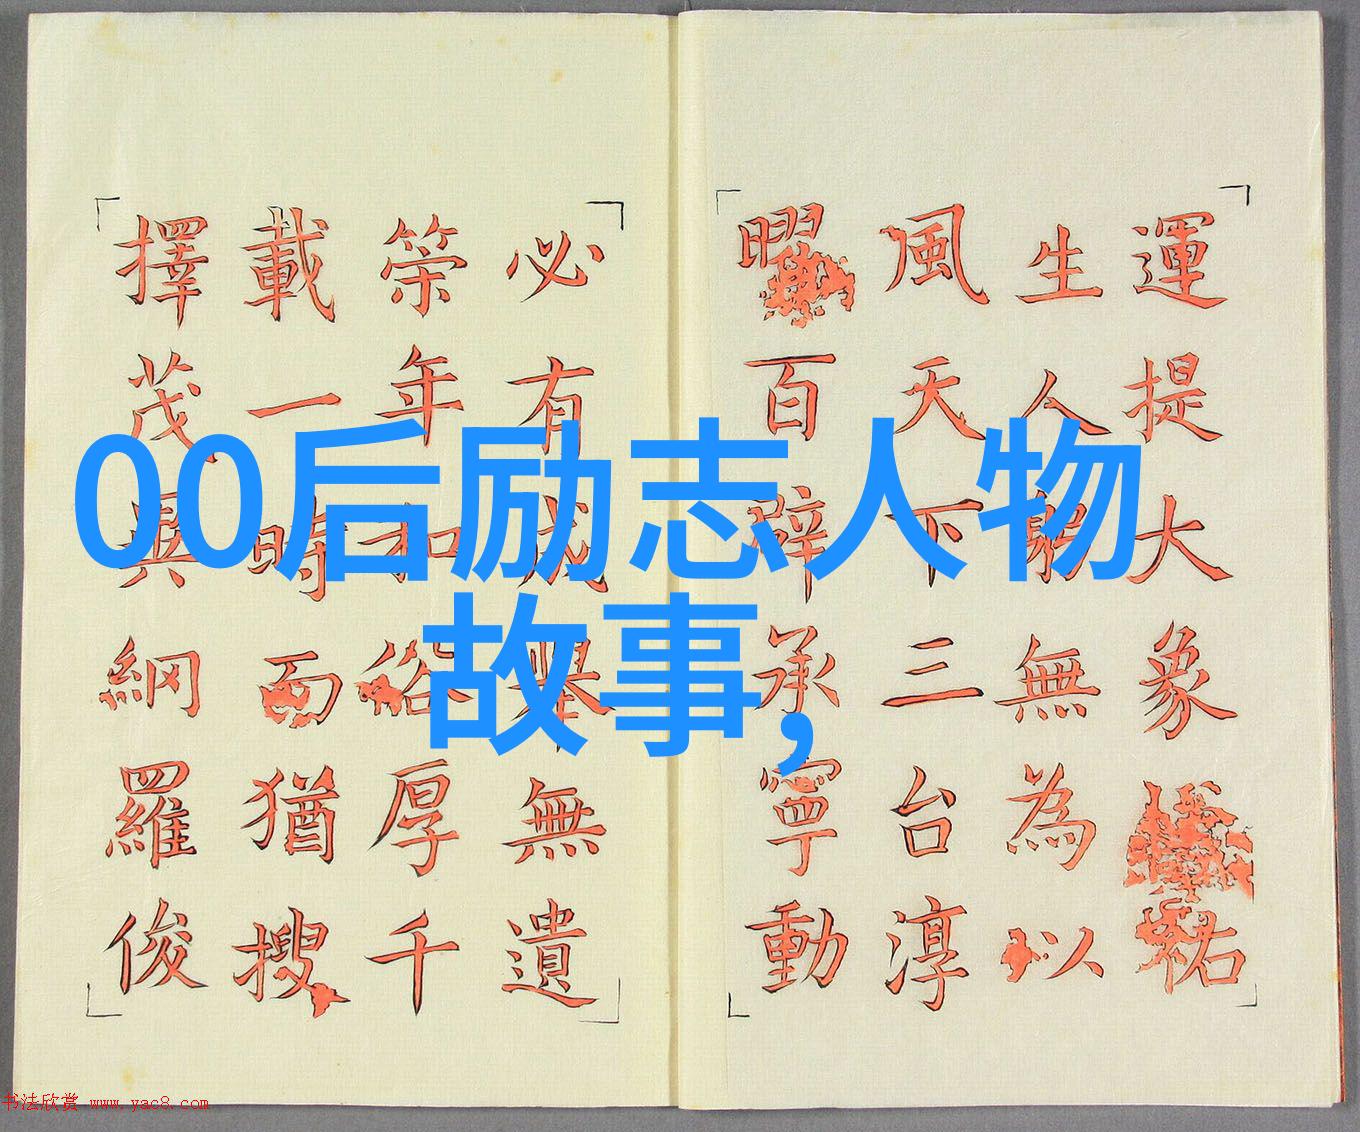 00后励志人物
故事,
運提大象祐
生人無為以
風天下三台淳
曜百辟承寧動
必有舉無遺
筞年和俗厚千
載一時而猶搜
擇茂異網羅俊
书法欣赏 www.yac8.com